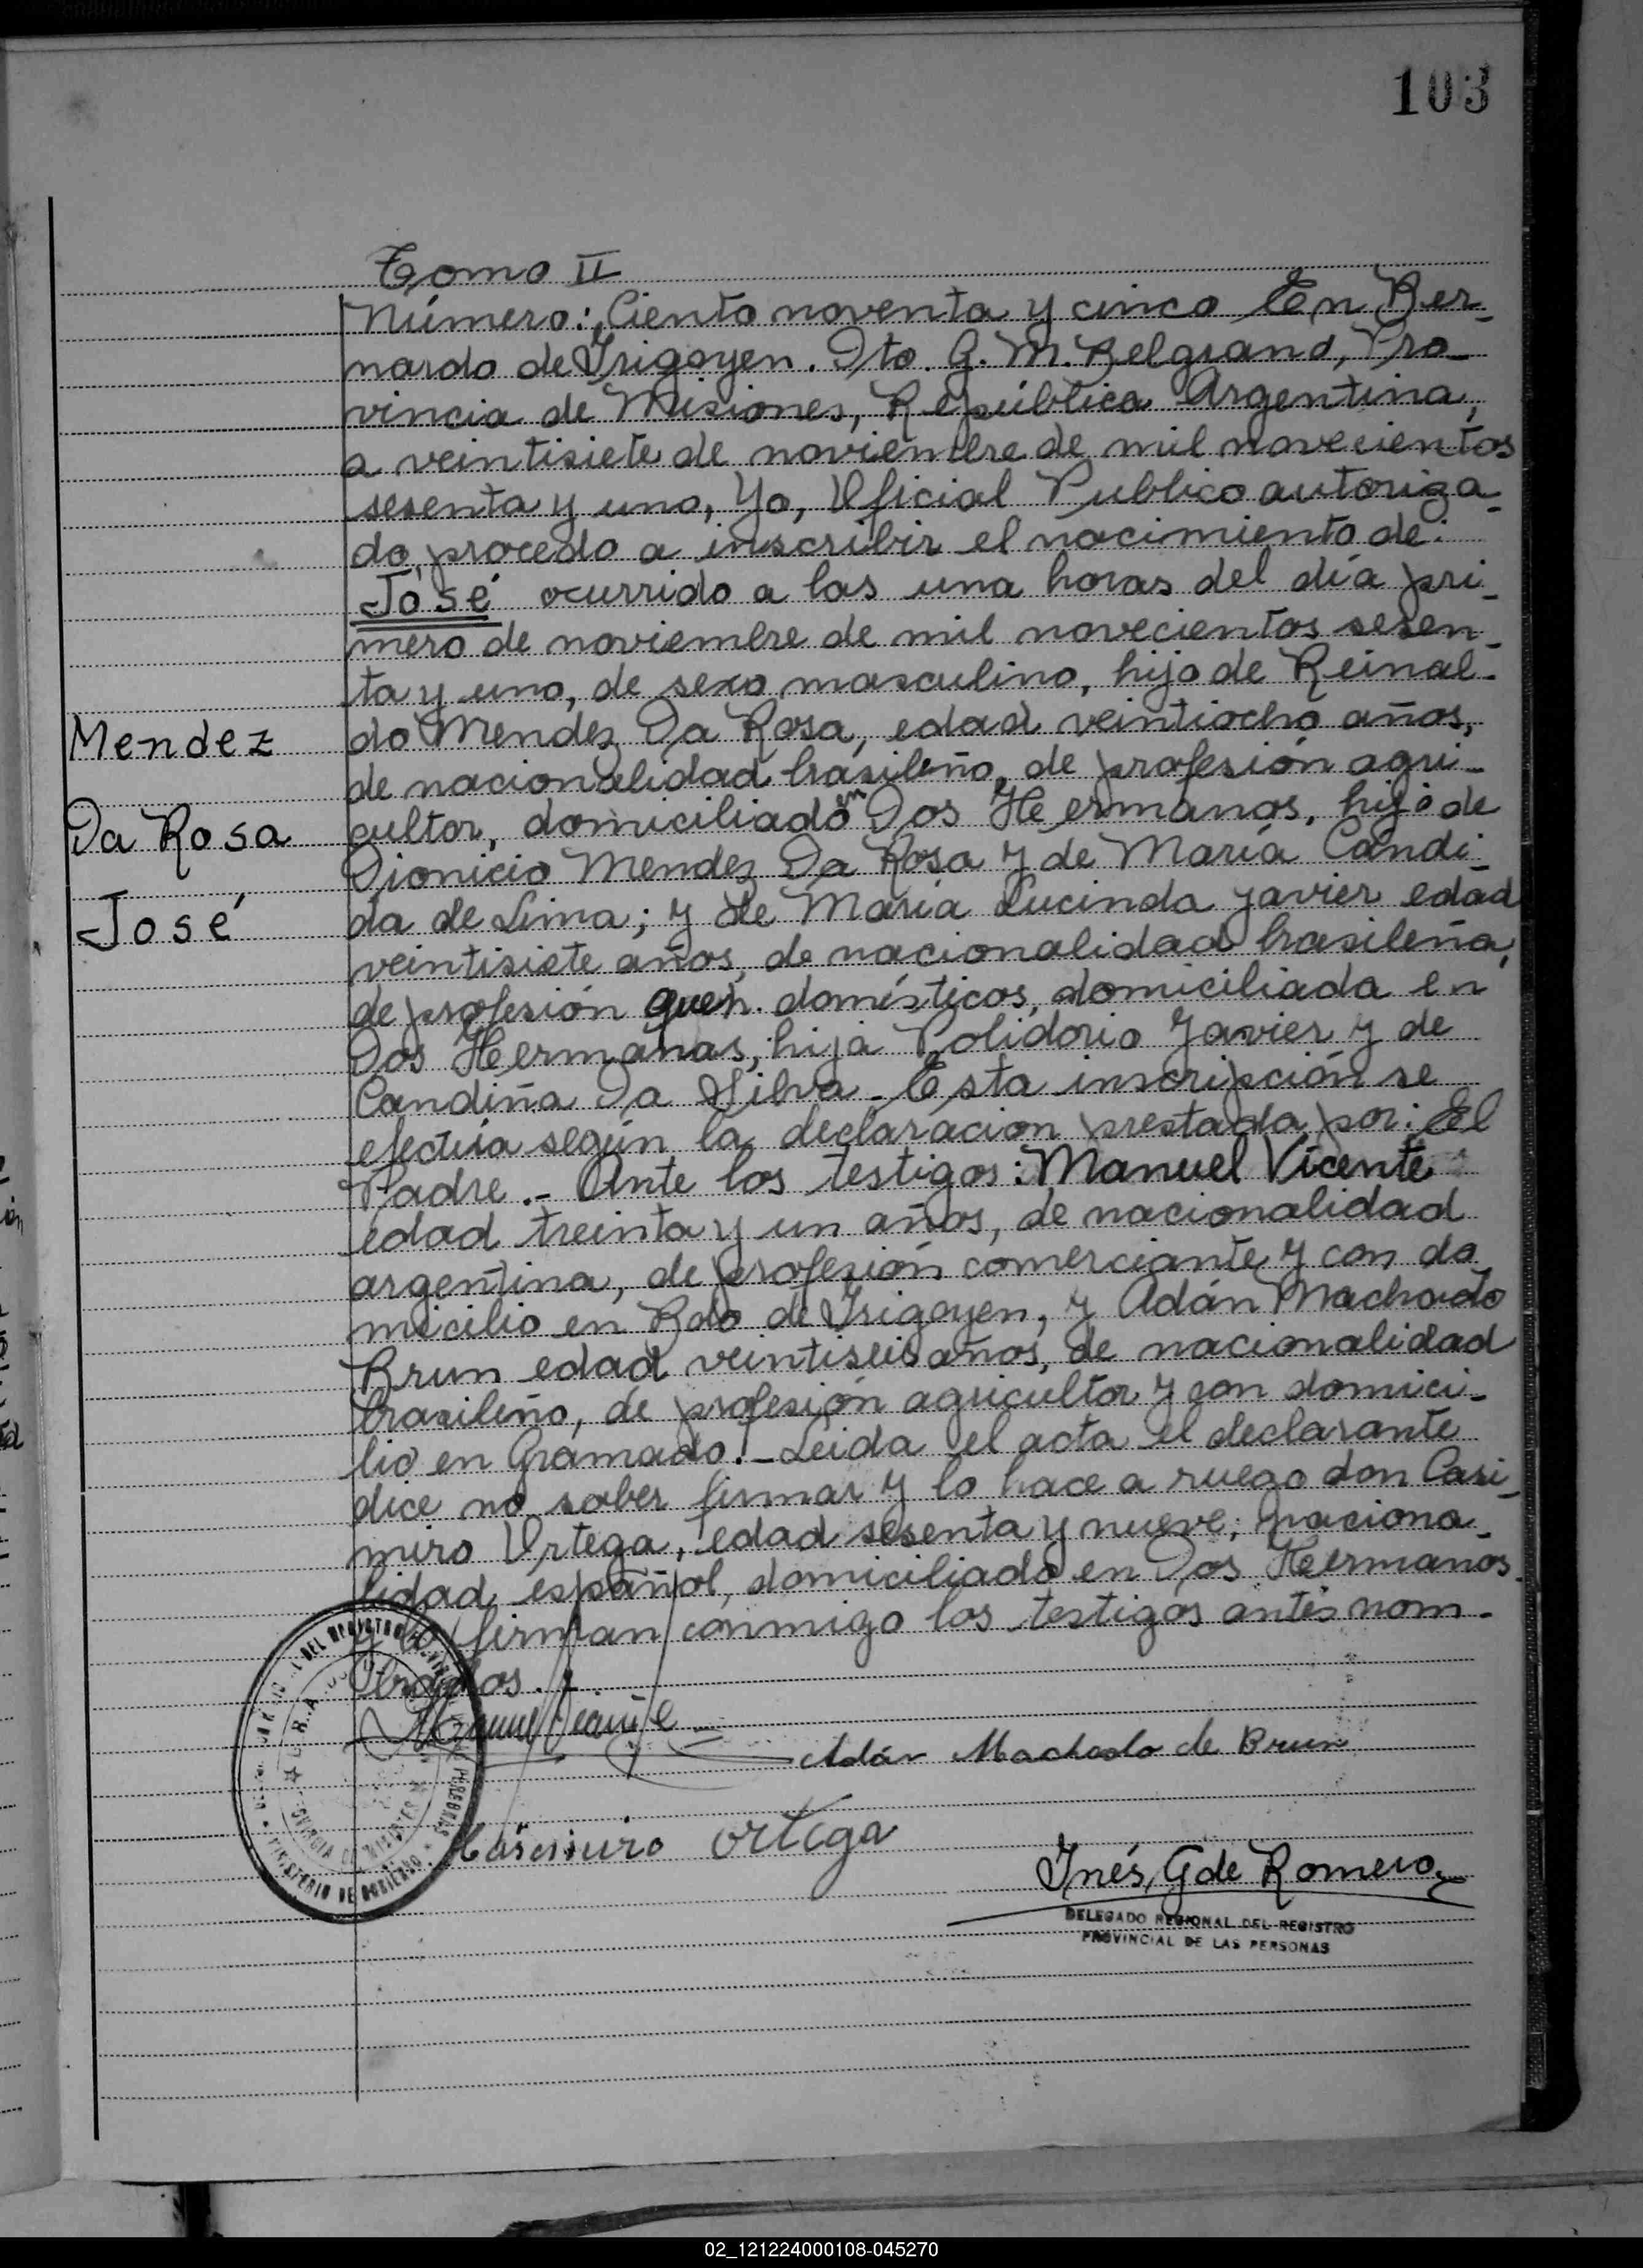 103
Tomo II
Número: Ciento noventa y cinco En Ber-
nardo de Irigoyen. Dto. G. M. Belgrano, Pro-
vincia de Misiones, República Argentina,
a veintisiete de noviembre de mil novecientos
sesenta y uno, Yo, Oficial Publico autoriza-
do, procedo a inscribir el nacimiento de:
José ocurrido a las una horas del día pri-
mero de noviembre de mil novecientos sesen-
ta y uno, de sexo masculino, hijo de Reinal-
Mendez
do Mendez Da Rosa, edad veintiocho años,
de nacionalidad brasileño, de profesión agri-
Da Rosa
cultor, domiciliado en Dos Hermanas, hijo de
Dionicio Mendez Da Rosa y de María Candi-
José
da de Lima; y de María Lucinda Javier edad
veintisiete años, de nacionalidad brasileña,
de profesión queh. domésticos, domiciliada en
Dos Hermanas, hija Polidorio Javier y de
Candiña Da Silva. Esta inscripción se
efectúa según la declaración prestada por: El
Padre.- Ante los testigos: Manuel Vicente
edad treinta y un años, de nacionalidad
argentina, de profesión comerciante y con do-
micilio en Bdo de Irigoyen, y Adán Machado
Brun edad veintiseis años, de nacionalidad
brasileño, de profesión agricultor y con domici-
lio en Gramado.- Leida el acta el declarante
dice no saber firmar y lo hace a ruego don Casi-
miro Ortega, edad sesenta y nueve, naciona-
lidad español, domiciliado en Dos Hermanas.
y lo firman conmigo los testigos antes nom-
brados.-
Manuel Vicente
Adán Machado de Brun
Casimiro Ortega
Inés G de Romero
DELEGADO REGIONAL DEL REGISTRO
PROVINCIAL DE LAS PERSONAS
DEL REGISTRO
PERSONAS
MINISTERIO DE GOBIERNO
02_121224000108-045270